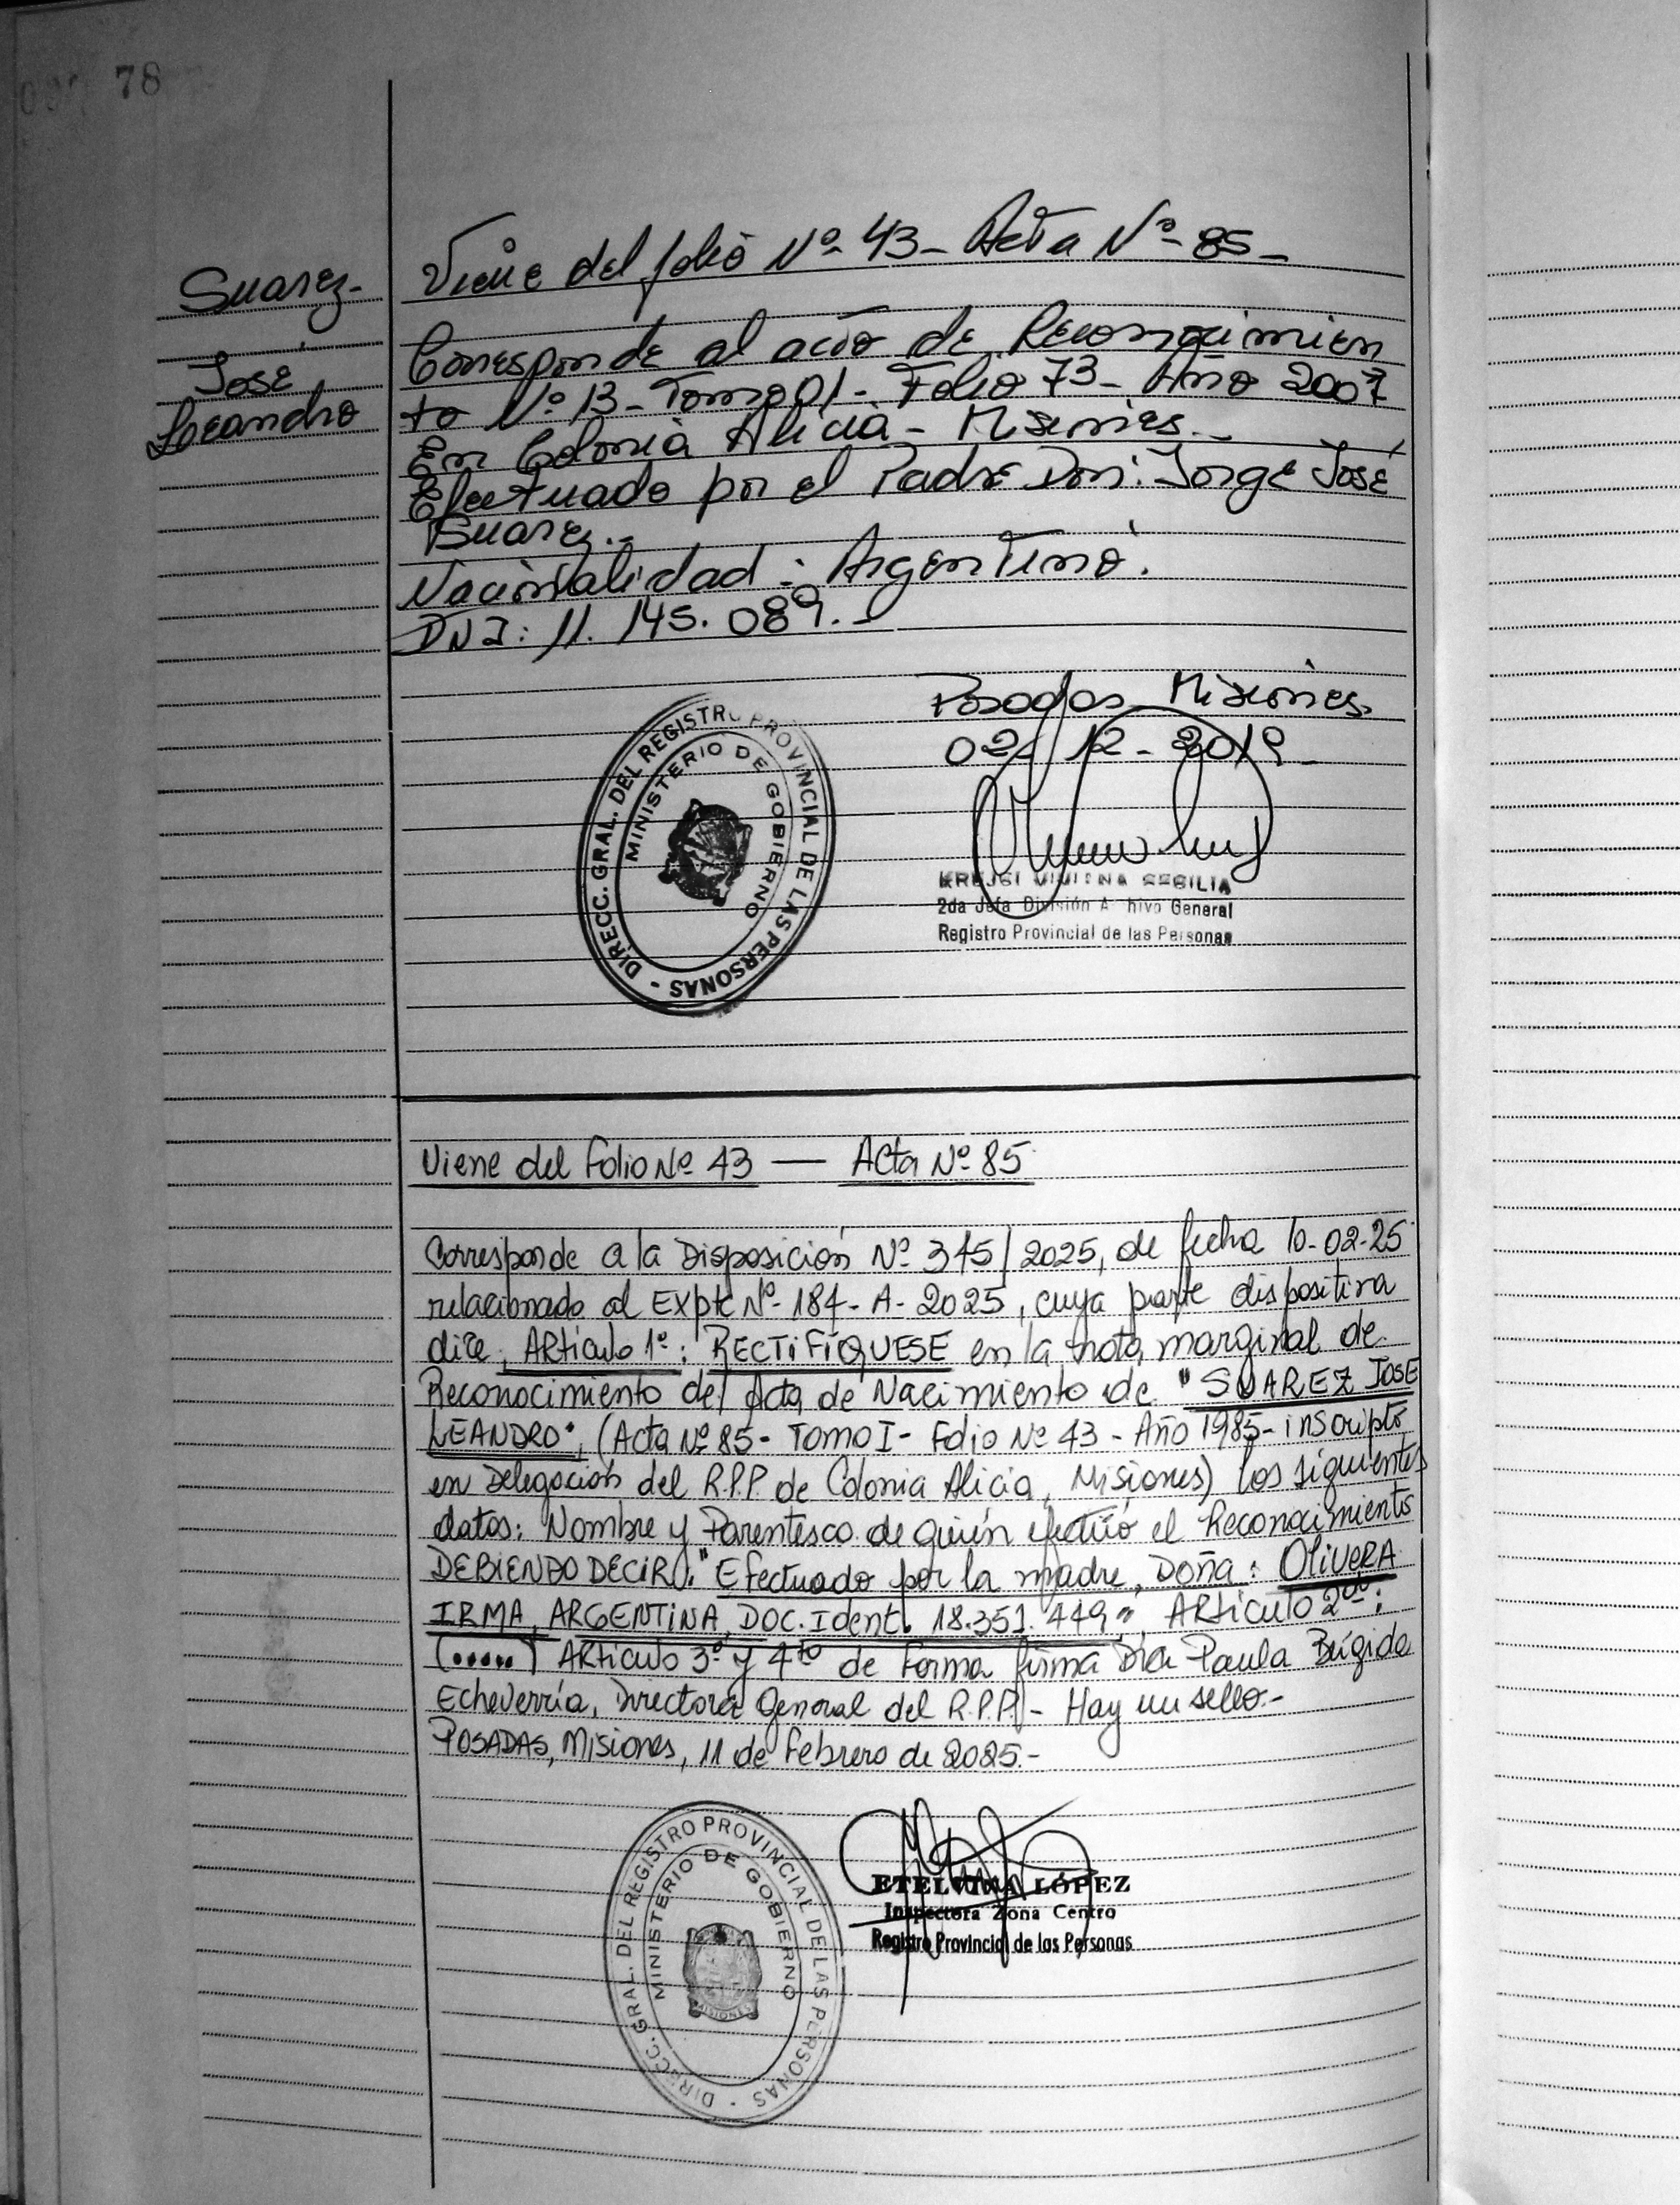 78
Suarez-
José
Leandro
Viene del folio Nº 43 - Acta Nº 85 -
Corresponde al acto de Reconocimien
to Nº 13 - Tomo 01 - Folio 73 - Año 2007
En Colonia Alicia - Misiones.-
Efectuado por el Padre Don: Jorge José
Suarez.-
Nacionalidad: Argentino.
DNI: 11.145.089.-
Posadas Misiones.
02/12-2019-
DIRECC. GRAL. DEL REGISTRO PROVINCIAL DE LAS PERSONAS -
MINISTERIO DE GOBIERNO
2da Jefa División A hivo General
Registro Provincial de las Personas
Viene del Folio Nº 43 — Acta Nº 85
Corresponde a la Disposición Nº 345/2025, de fecha 10-02-25
relacionado al Expte Nº-184-A-2025, cuya parte dispositiva
dice, ARticulo 1º: RECTIFÍQUESE en la nota marginal de
Reconocimiento del Acta de Nacimiento de "SUAREZ JOSE
LEANDRO", (Acta Nº 85- TOMO I- Folio Nº 43 - Año 1985- inscripto
en Delegación del R.P.P. de Colonia Alicia, Misiones) los siguientes
datos: Nombre y Parentesco de quién efectuó el Reconocimiento
DEBIENDO DECIR: "Efectuado por la madre, DOÑA: OLIVERA
IRMA, ARGENTINA, DOC. Ident. 18.351.449", ARticulo 2do:
(.....) ARticulo 3º y 4to de Forma firma Dra Paula Brígida
Echeverría, Directora General del R.P.P.- Hay un sello.-
POSADAS, Misiones, 11 de Febrero de 2025.-
DIRECC. GRAL. DEL REGISTRO PROVINCIAL DE LAS PERSONAS -
MINISTERIO DE GOBIERNO
MISIONES
ETELVINA LÓPEZ
Inspectora Zona Centro
Registro Provincial de las Personas